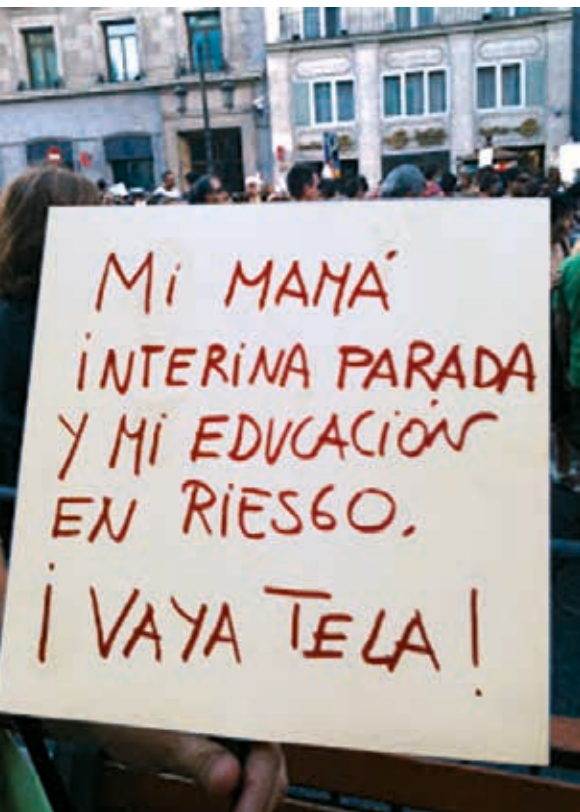 Mi MAMÁ
iNTERiNA PARADA
Y Mi EDUCACiÓN
EN RiESGO.
¡VAYA TELA!